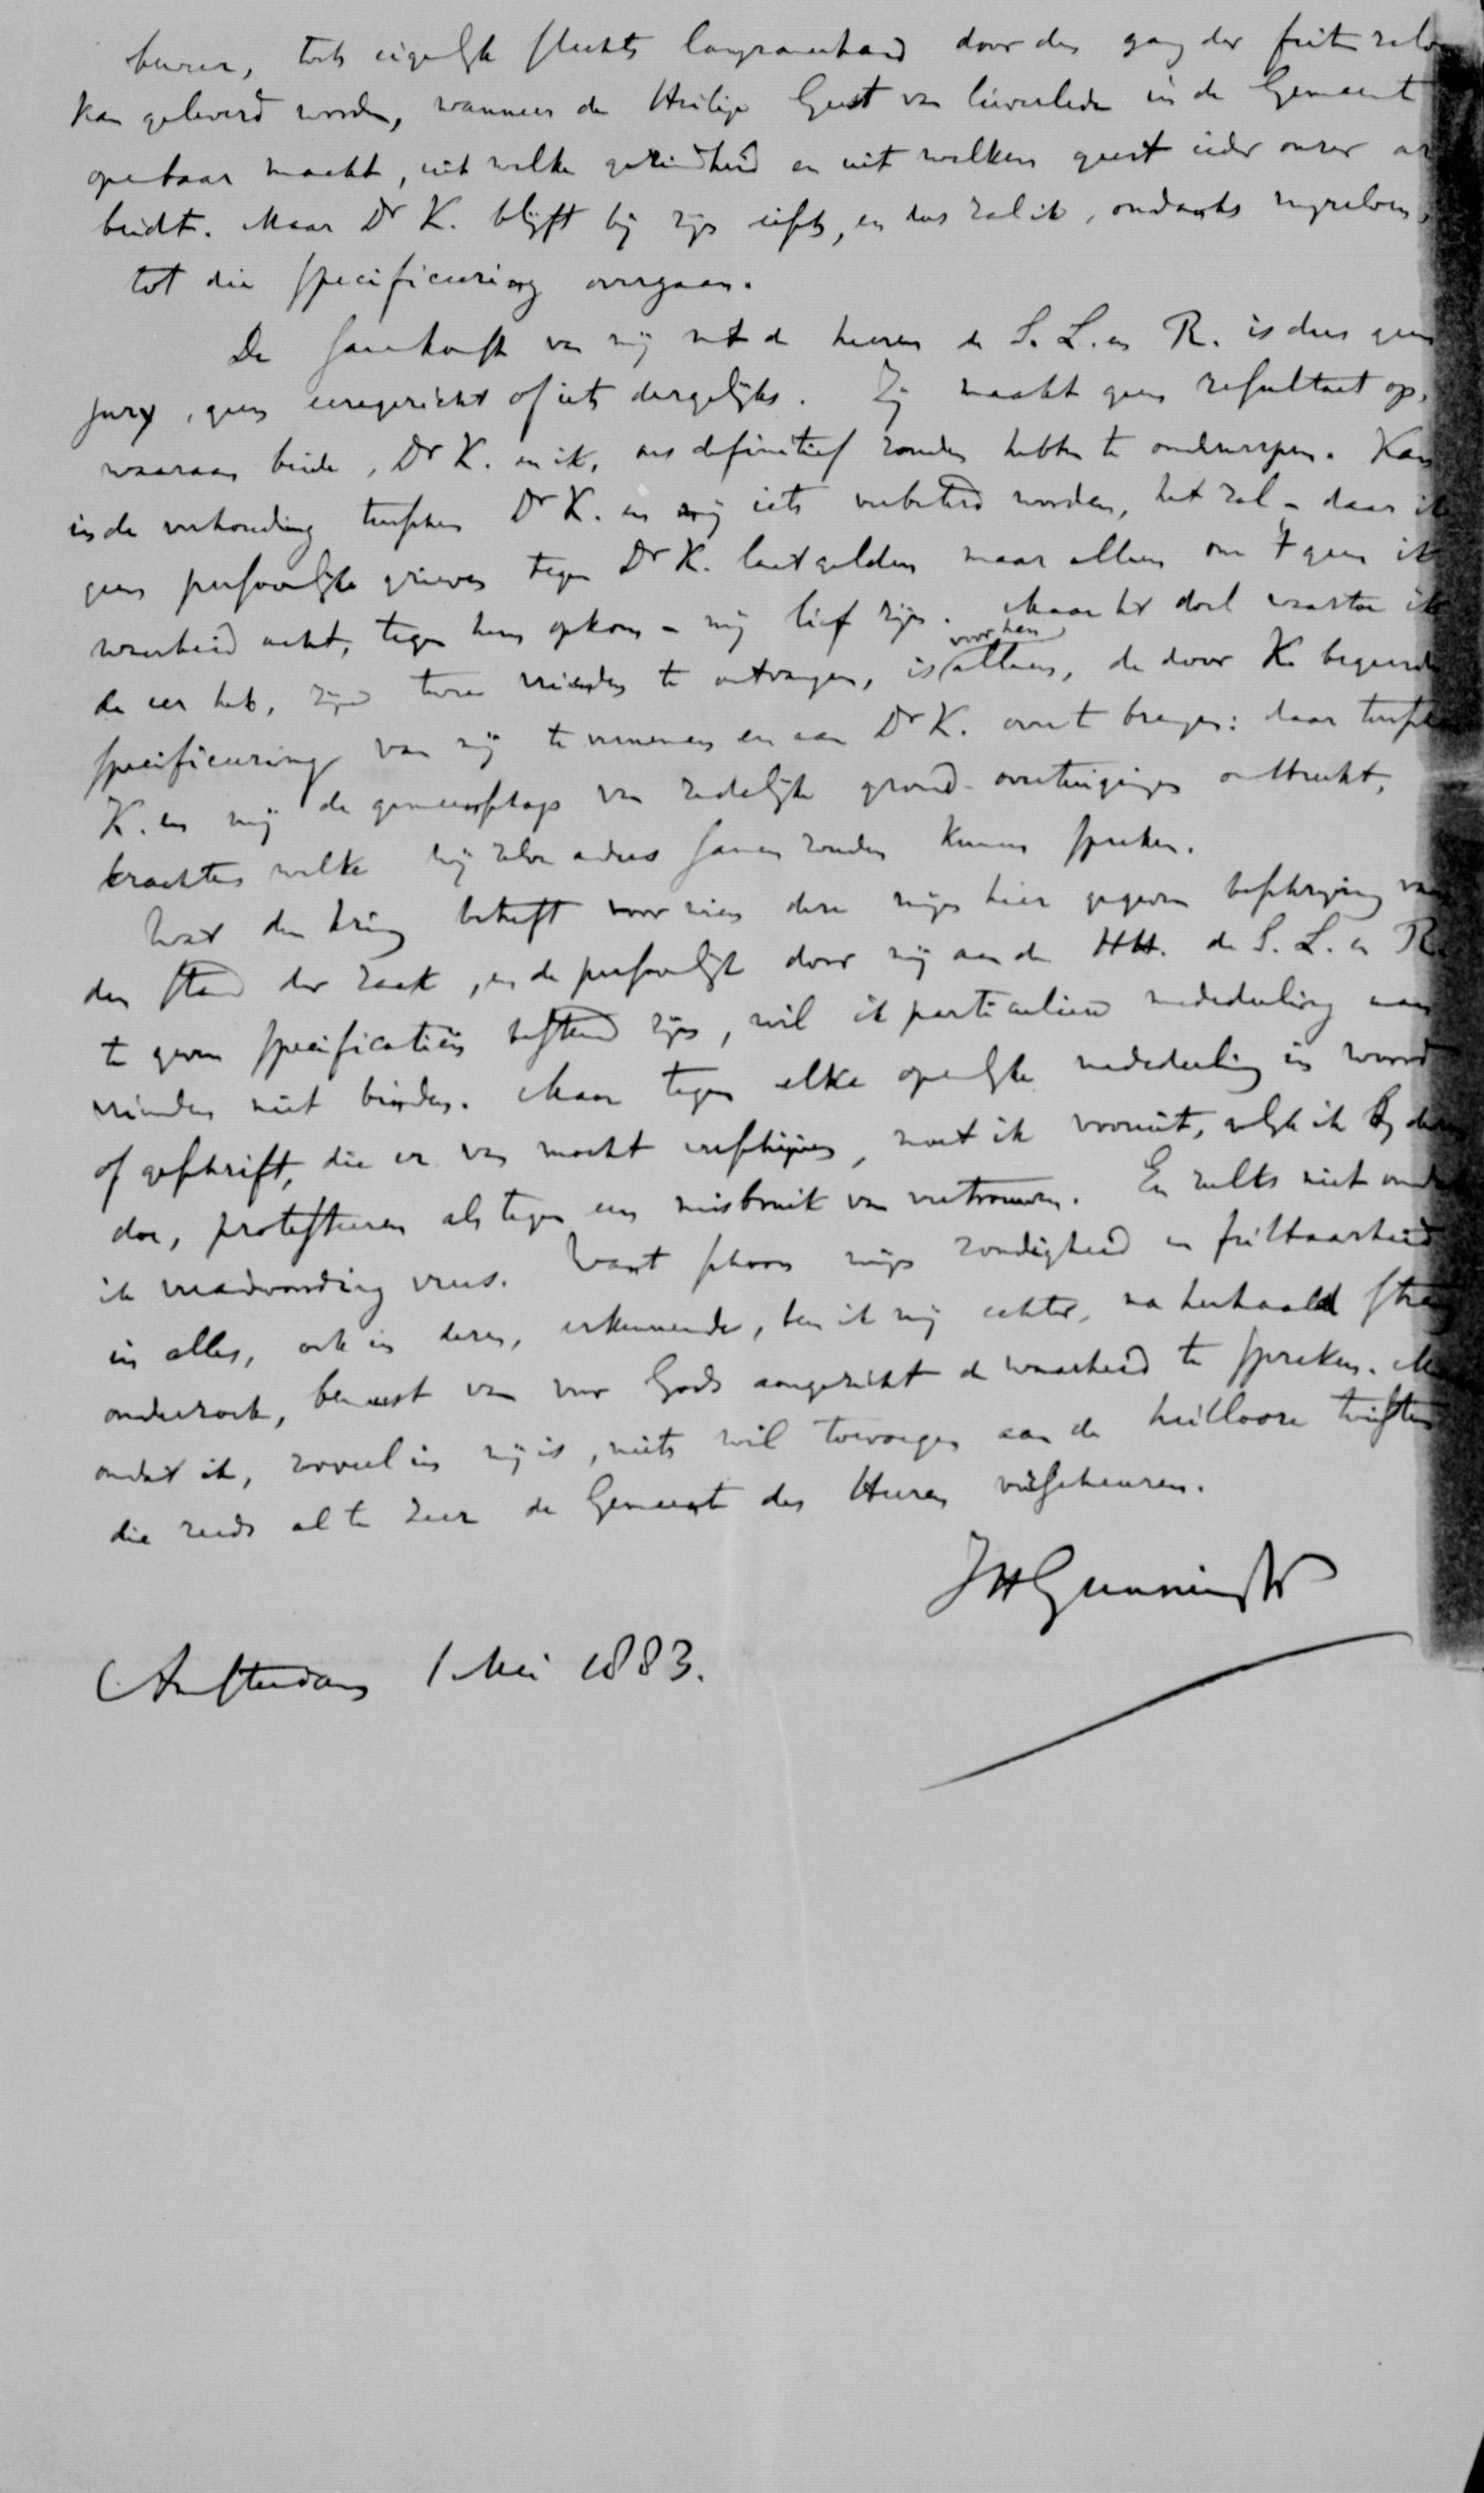 beuren, toch eigenlijk slechts langzamerhand door den gang der feiten zelve
kan geleverd worden, wanneer de Heilige Geest van lieverlede in de Gemeente
openbaar maakt, uit welke gezindheid en uit welken geest ieder onzer ar
beidt. Maar Dr K. blijft bij zijn eisch, en dus zal ik, ondanks mijzelven,
tot die specificeering overgaan.
De samenkomst van mij met de heeren de S. L. en R. is dus geen
jury, geen eeregericht of iets dergelijks. Zij maakt geen resultaat op,
waaraan beide, Dr K. en ik, ons definitief zouden hebben te onderwerpen. Kan
in de verhouding tusschen Dr K. en mij iets verbeterd worden, het zal – daar ik
geen persoonlijke grieven tegen Dr K. laat gelden maar alleen om 't geen ik
waarheid acht, tegen hem opkom – mij lief zijn. Maar het doel waartoe ik
de eer heb, zijne twee vrienden te ontvangen, is voor hen alleen, de door K. begeerde
specificeering van mij te vernemen en aan Dr K. over te brengen: daar tusschen
K. en mij de gemeenschap van zedelijke grond-overtuigingen ontbreekt,
krachtens welke wij zelve anders samen zouden kunnen spreken.
Wat den kring betreft voor wien deze mijn hier gegeven beschrijving van
den stand der zaak, en de persoonlijk door mij aan de HH. de S. L. en R.
te geven specificatiën bestemd zijn, wil ik particuliere mededeeling aan
vrienden niet binden. Maar tegen elke openlijke mededeeling in woord
of geschrift, die er van mocht verschijnen, moet ik vooruit, gelijk ik bij dezen
doe, protesteeren als tegen een misbruik van vertrouwen. En zulks niet omdat
ik verantwoording vrees. Want schoon mijn zondigheid en feilbaarheid
in alles, ook in dezen, erkennende, ben ik mij echter, na herhaald streng
onderzoek, bewust van voor Gods aangezicht de waarheid te spreken. Maar
omdat ik, zooveel in mij is, niets wil toevoegen aan de heillooze twisten
die reeds al te zeer de Gemeente des Heeren verscheuren.
JHGunning Jr
Amsterdam 1 Mei 1883.